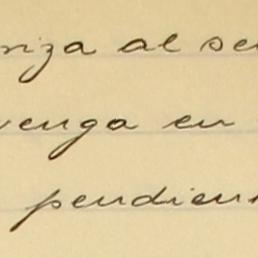 riza al se
venga en
pendien